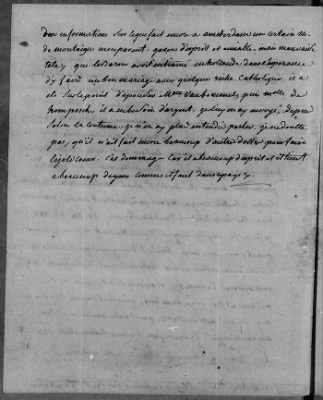 des informations sur ce que fait mon a amsterdam un certain m.
de montaigu mon parent garçon d'esprit et aimable, mais mauvaise
tete, que le Baron avoit entrainé en hollande dans l'esperance
d'y faire un bon mariage avec quelque riche Catholique il a
eté sur le point d'epouser Mme puis melle de
hompesch, il a eu besoin d'argent, je luy en ay envoyé, depuis
selon la coutume, je n'en ay plus entendu parler, je ne doute
pas, qu'il n'ait fait encore beaucoup d'autres dettes pour faire
le joli coeur. C'est dommage car il a beaucoup d'esprit et il tient
a beaucoup de gens comme il faut dans ce pays cy.